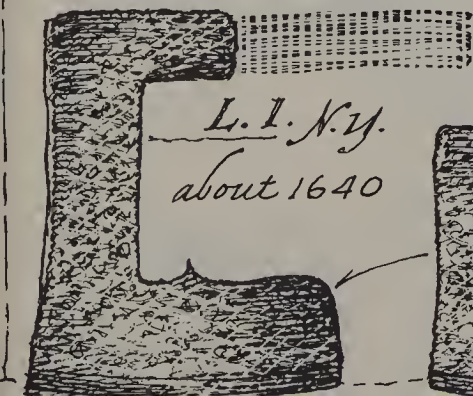 L. I. N.Y.
about 1640